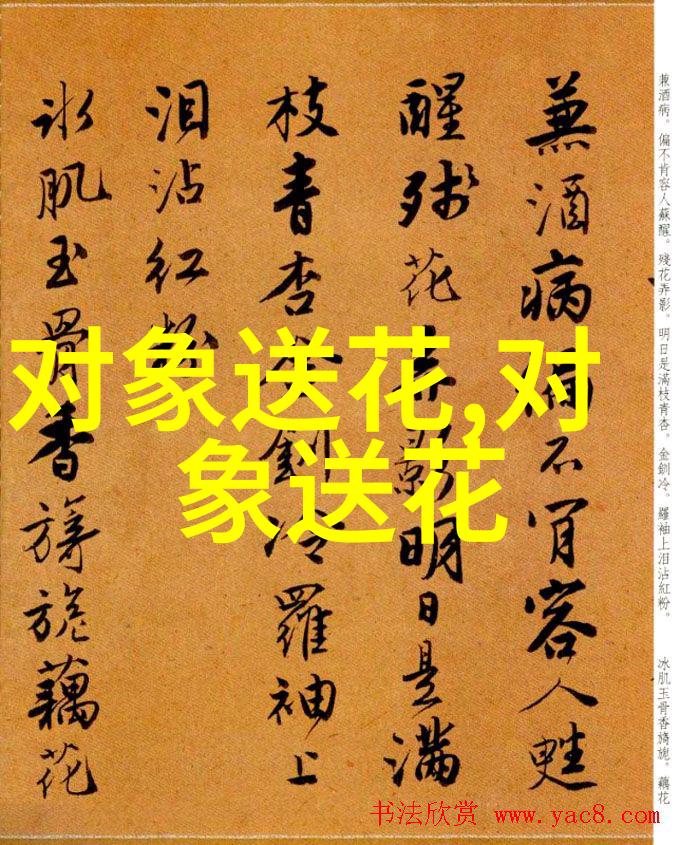 兼酒病。偏不肯容人蘇醒。殘花弄影。明日是滿枝青杏。金釧冷。羅袖上泪沾紅粉。
冰肌玉骨香旖旎。藕花
兼酒病偏不肯容人甦
醒殘花弄影明日是滿
枝青杏金釧冷羅袖上
泪沾紅粉
冰肌玉骨香旖旎藕花
对象送花,对
象送花
书法欣赏 www.yac8.com